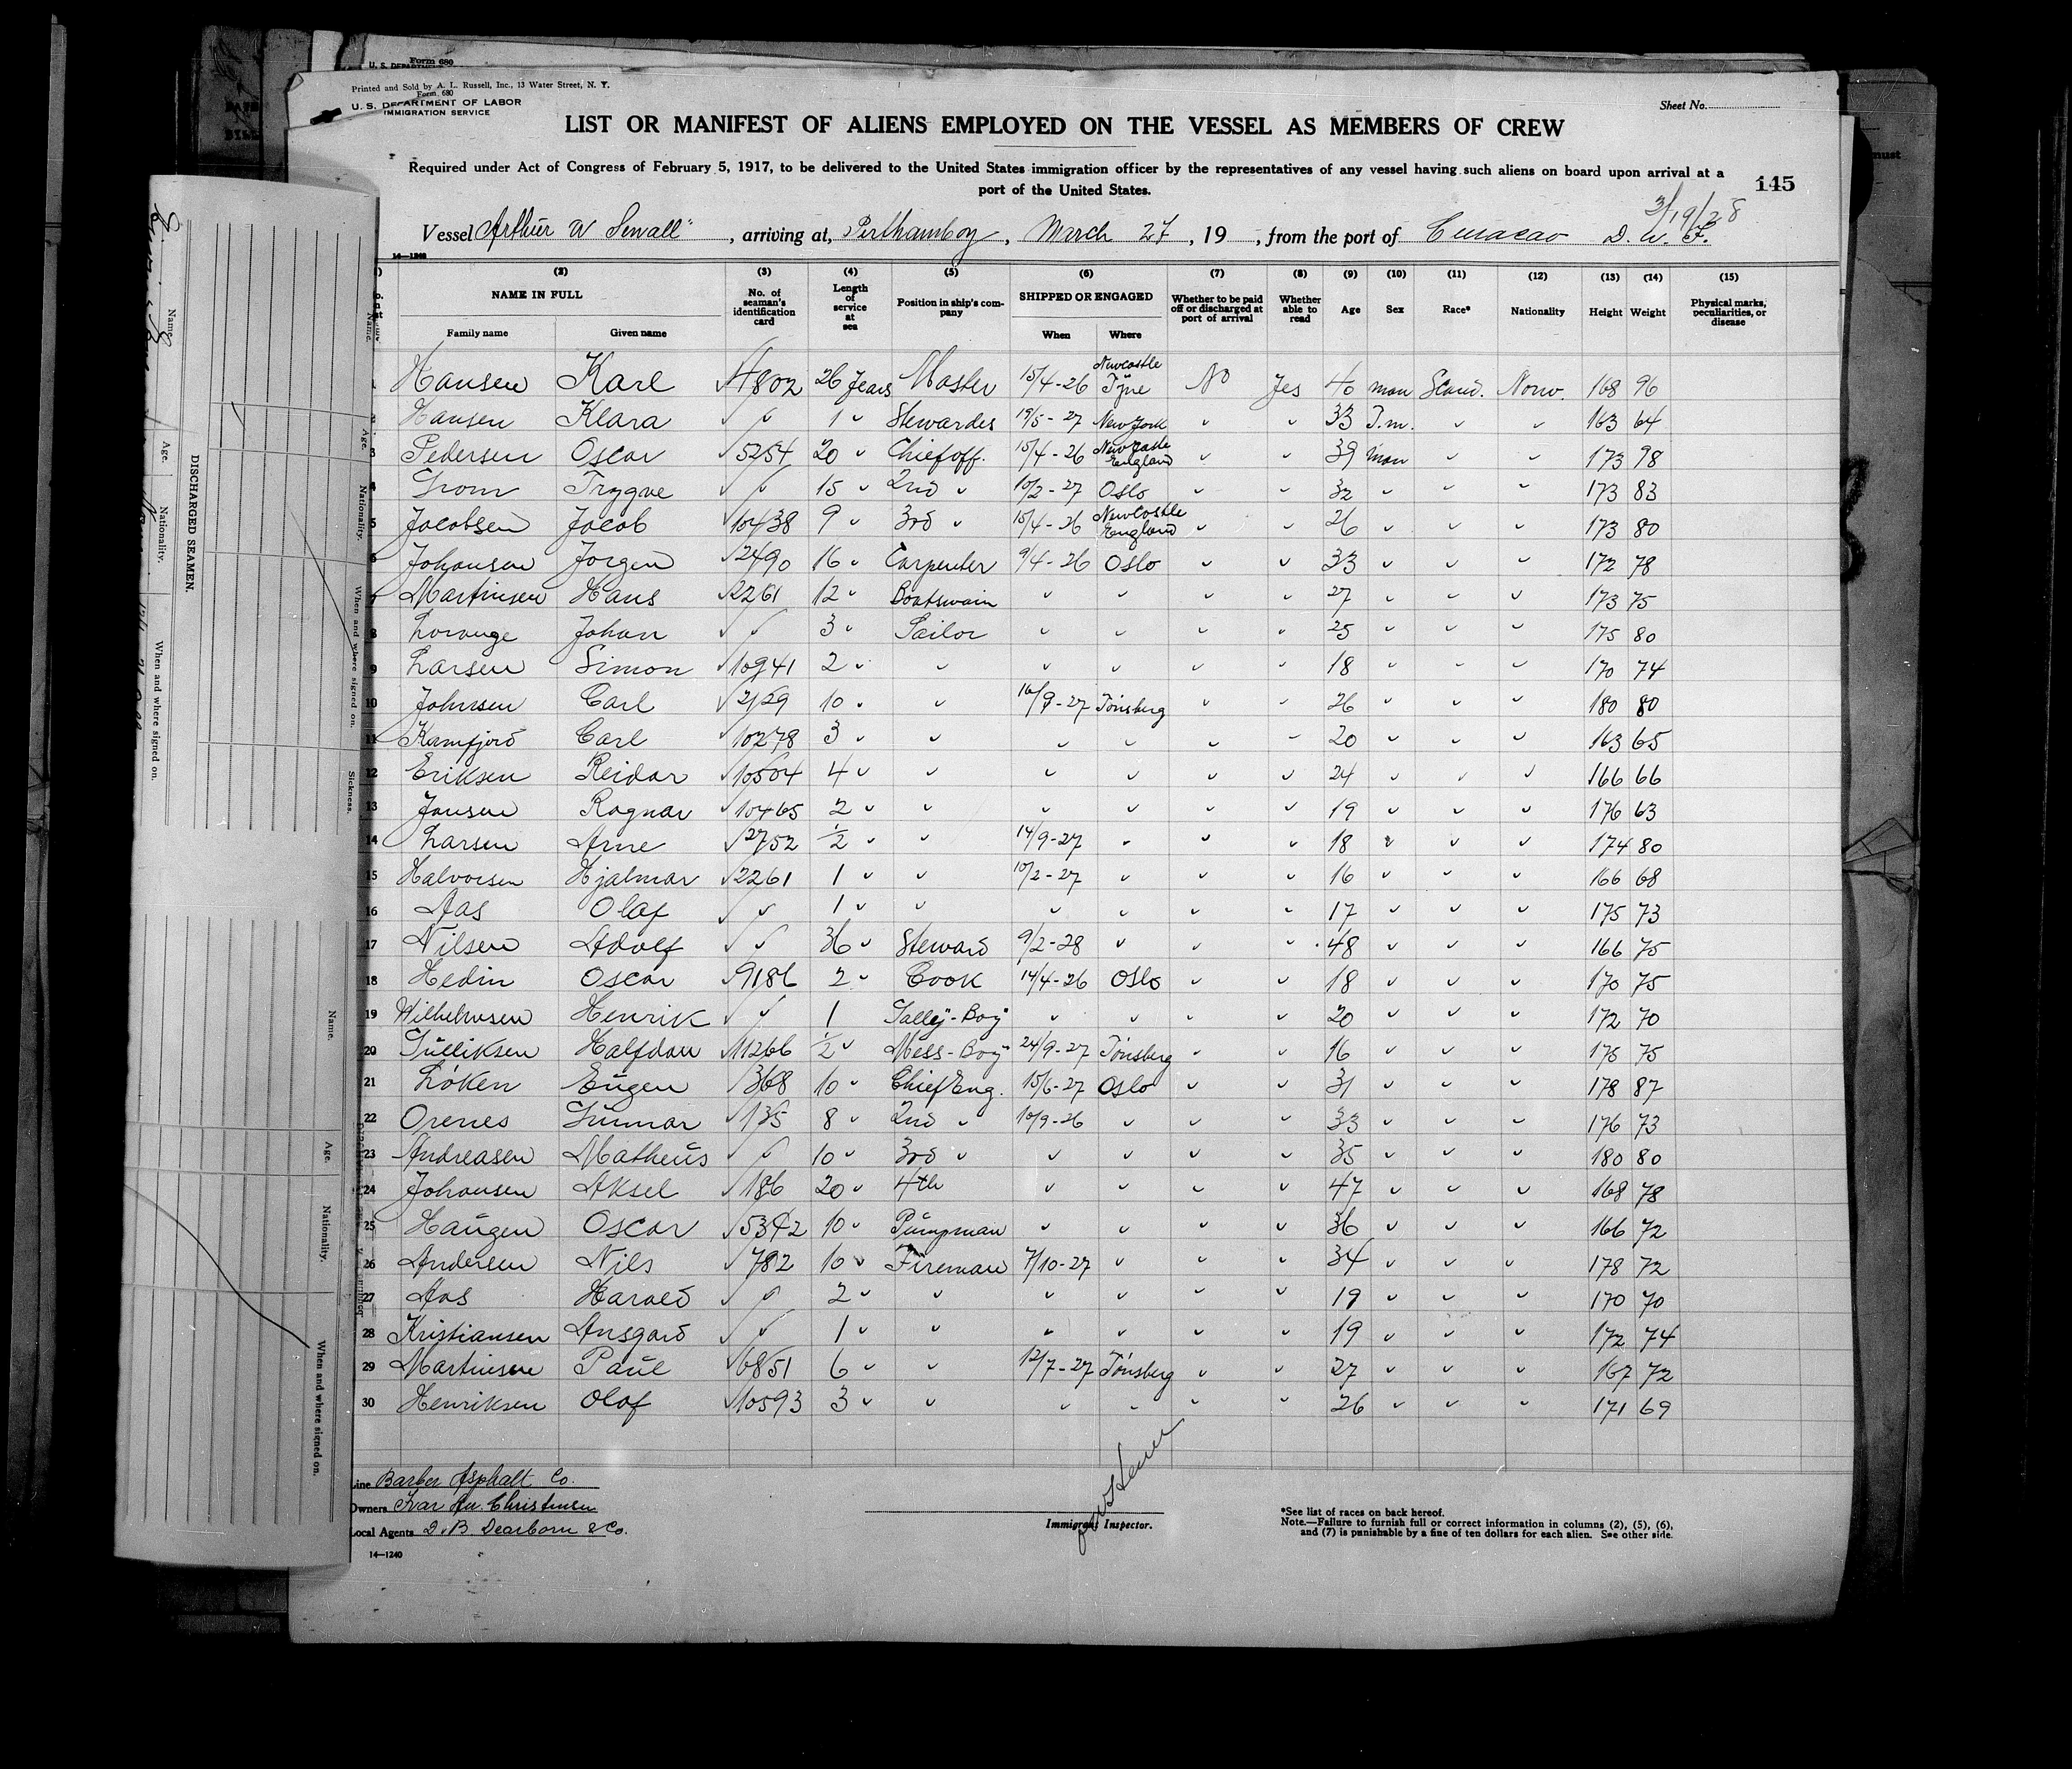 U. S. DEPARTMENT Form 680
Printed and Sold by A. L. Russell, Inc., 13 Water Street, N. Y.
Form 680
U. S. DEPARTMENT OF LABOR
IMMIGRATION SERVICE
Sheet No.
LIST OR MANIFEST OF ALIENS EMPLOYED ON THE VESSEL AS MEMBERS OF CREW
Required under Act of Congress of February 5, 1917, to be delivered to the United States immigration officer by the representatives of any vessel having such aliens on board upon arrival at a
port of the United States.
145
3/19/28
Vessel Arthur W Sewall", arriving at, Perthamboy, March 27, 19 , from the port of Curacao D. W. I.
14—1240
(2) (3) (4) (5) (6) (7) (8) (9) (10) (11) (12) (13) (14) (15)
NAME IN FULL No. of seaman's identification card Length of service at sea Position in ship's company SHIPPED OR ENGAGED Whether to be paid off or discharged at port of arrival Whether able to read Age Sex Race* Nationality Height Weight Physical marks, peculiarities, or disease
Family name Given name When Where
1 Hansen Karl ✓ 4802 26 years Master 15/4-26 Newcastle Tyne No Yes 40 man Scand. Norw. 168 96
2 Hansen Klara ✓ " 1 " Stewardes 19/5-27 New York " " 33 " " 163 64
3 Pedersen Oscar ✓ 5254 20 " Chief off. 15/4-26 Newcastle England " " 39 man " " 173 98
4 Trygve ✓ " 15 " 2nd " 10/2-27 Oslo " " 32 " " " 173 83
5 Jacobsen Jacob ✓ 10438 9 " 3rd " 15/4-26 Newcastle England " " 26 " " " 173 80
6 Johansen Jorgen ✓ 2490 16 " Carpenter 9/4-26 Oslo " " 33 " " " 172 78
7 Martinsen Hans ✓ 2261 12 " Boatswain " " " " 27 " " " 173 75
8 Lorange Johan ✓ " 3 " Sailor " " " " 25 " " " 175 80
9 Larsen Simon ✓ 10941 2 " " " " " " 18 " " " 170 74
10 Johnsen Carl ✓ 2129 10 " " 16/9-27 Tönsberg " " 26 " " " 180 80
11 Kamfjord Carl ✓ 10278 3 " " " " " " 20 " " " 163 65
12 Eriksen Reidar ✓ 10504 4 " " " " " " 24 " " " 166 66
13 Jansen Ragnar ✓ 10465 2 " " " " " " 19 " " " 176 63
14 Larsen Arne ✓ 2752 1/2 " " 14/9-27 " " " 18 " " " 174 80
15 Halvorsen Hjalmar ✓ 2261 1 " " 10/2-27 " " " 16 " " " 166 68
16 Aas Olaf ✓ " 1 " " " " " " 17 " " " 175 73
17 Nilsen Adolf ✓ " 36 " Steward 9/2-28 " " " 48 " " " 166 75
18 Hedin Oscar ✓ 9186 2 " Cook 14/4-26 Oslo " " 18 " " " 170 75
19 Wilhelmsen Henrik ✓ " 1 Galley-Boy " " " " 20 " " " 172 70
20 Gulliksen Halfdan ✓ 11266 1/2 " Mess-Boy 24/9-27 Tönsberg " " 16 " " " 175 75
21 Löken Eugen ✓ 368 10 " Chief Eng. 15/6-27 Oslo " " 31 " " " 178 87
22 Orenes Gunnar ✓ 135 8 " 2nd " 10/9-26 " " " 33 " " " 176 73
23 Andreasen Matheus ✓ " 10 " 3rd " " " " " 35 " " " 180 80
24 Johansen Aksel ✓ 186 20 " 4th " " " " 47 " " " 168 78
25 Haugen Oscar ✓ 5342 10 " Pumpman " " " " 36 " " " 166 72
26 Andersen Nils ✓ 782 10 " Fireman 7/10-27 " " " 34 " " " 178 72
27 Aas Harald ✓ " 2 " " " " " " 19 " " " 170 70
28 Kristiansen Ansgard ✓ " 1 " " " " " " 19 " " " 172 74
29 Martinsen Paul ✓ 6851 6 " " 12/7-27 Tönsberg " " 27 " " " 167 72
30 Henriksen Olaf ✓ 10593 3 " " " " " " 26 " " " 171 69
Line Barber Asphalt Co.
Owners Ivar An. Christensen
Local Agents D. B. Dearborn & Co.
14—1240
Immigrant Inspector.
*See list of races on back hereof.
Note.—Failure to furnish full or correct information in columns (2), (5), (6),
and (7) is punishable by a fine of ten dollars for each alien. See other side.
DISCHARGED SEAMEN.
Name. Age. Nationality. When and where signed on.
Name. Age. Nationality. When and where signed on. Sickness.
Name. Age. Nationality. When and where signed on.
must